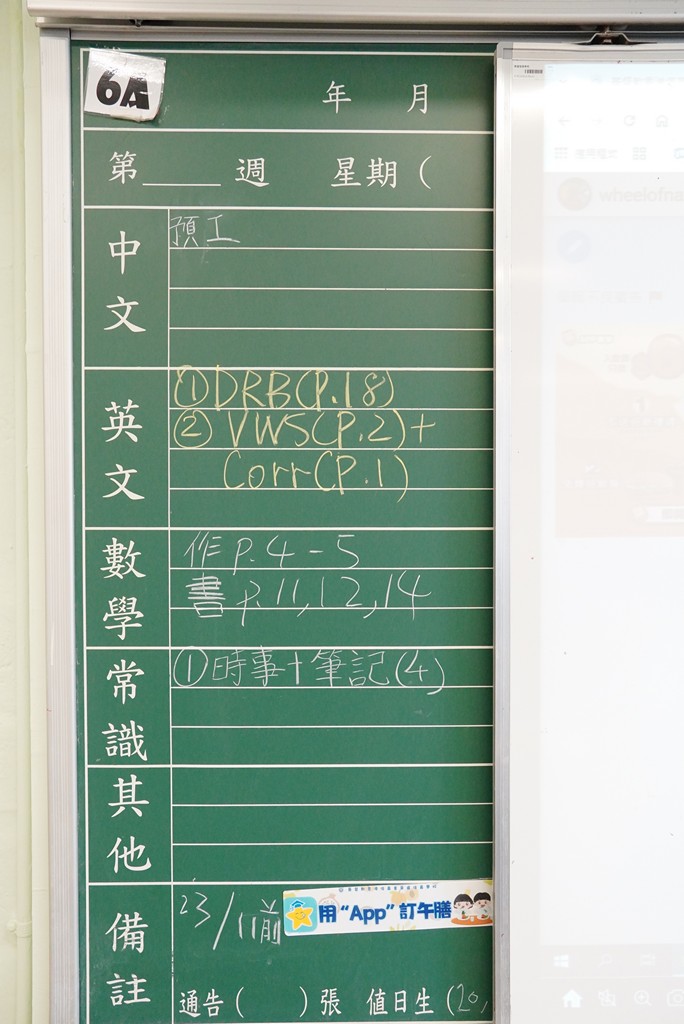 6A
年 月
第____週 星期(
中文
預工
英文
①DRB(P.18)
②VWS(P.2)+
Corr(P.1)
數學
作p.4-5
書p.11,12,14
常識
①時事+筆記(4)
其他
備註
23/11前
用“App”訂午膳
通告( )張 值日生(20,
wheelofna